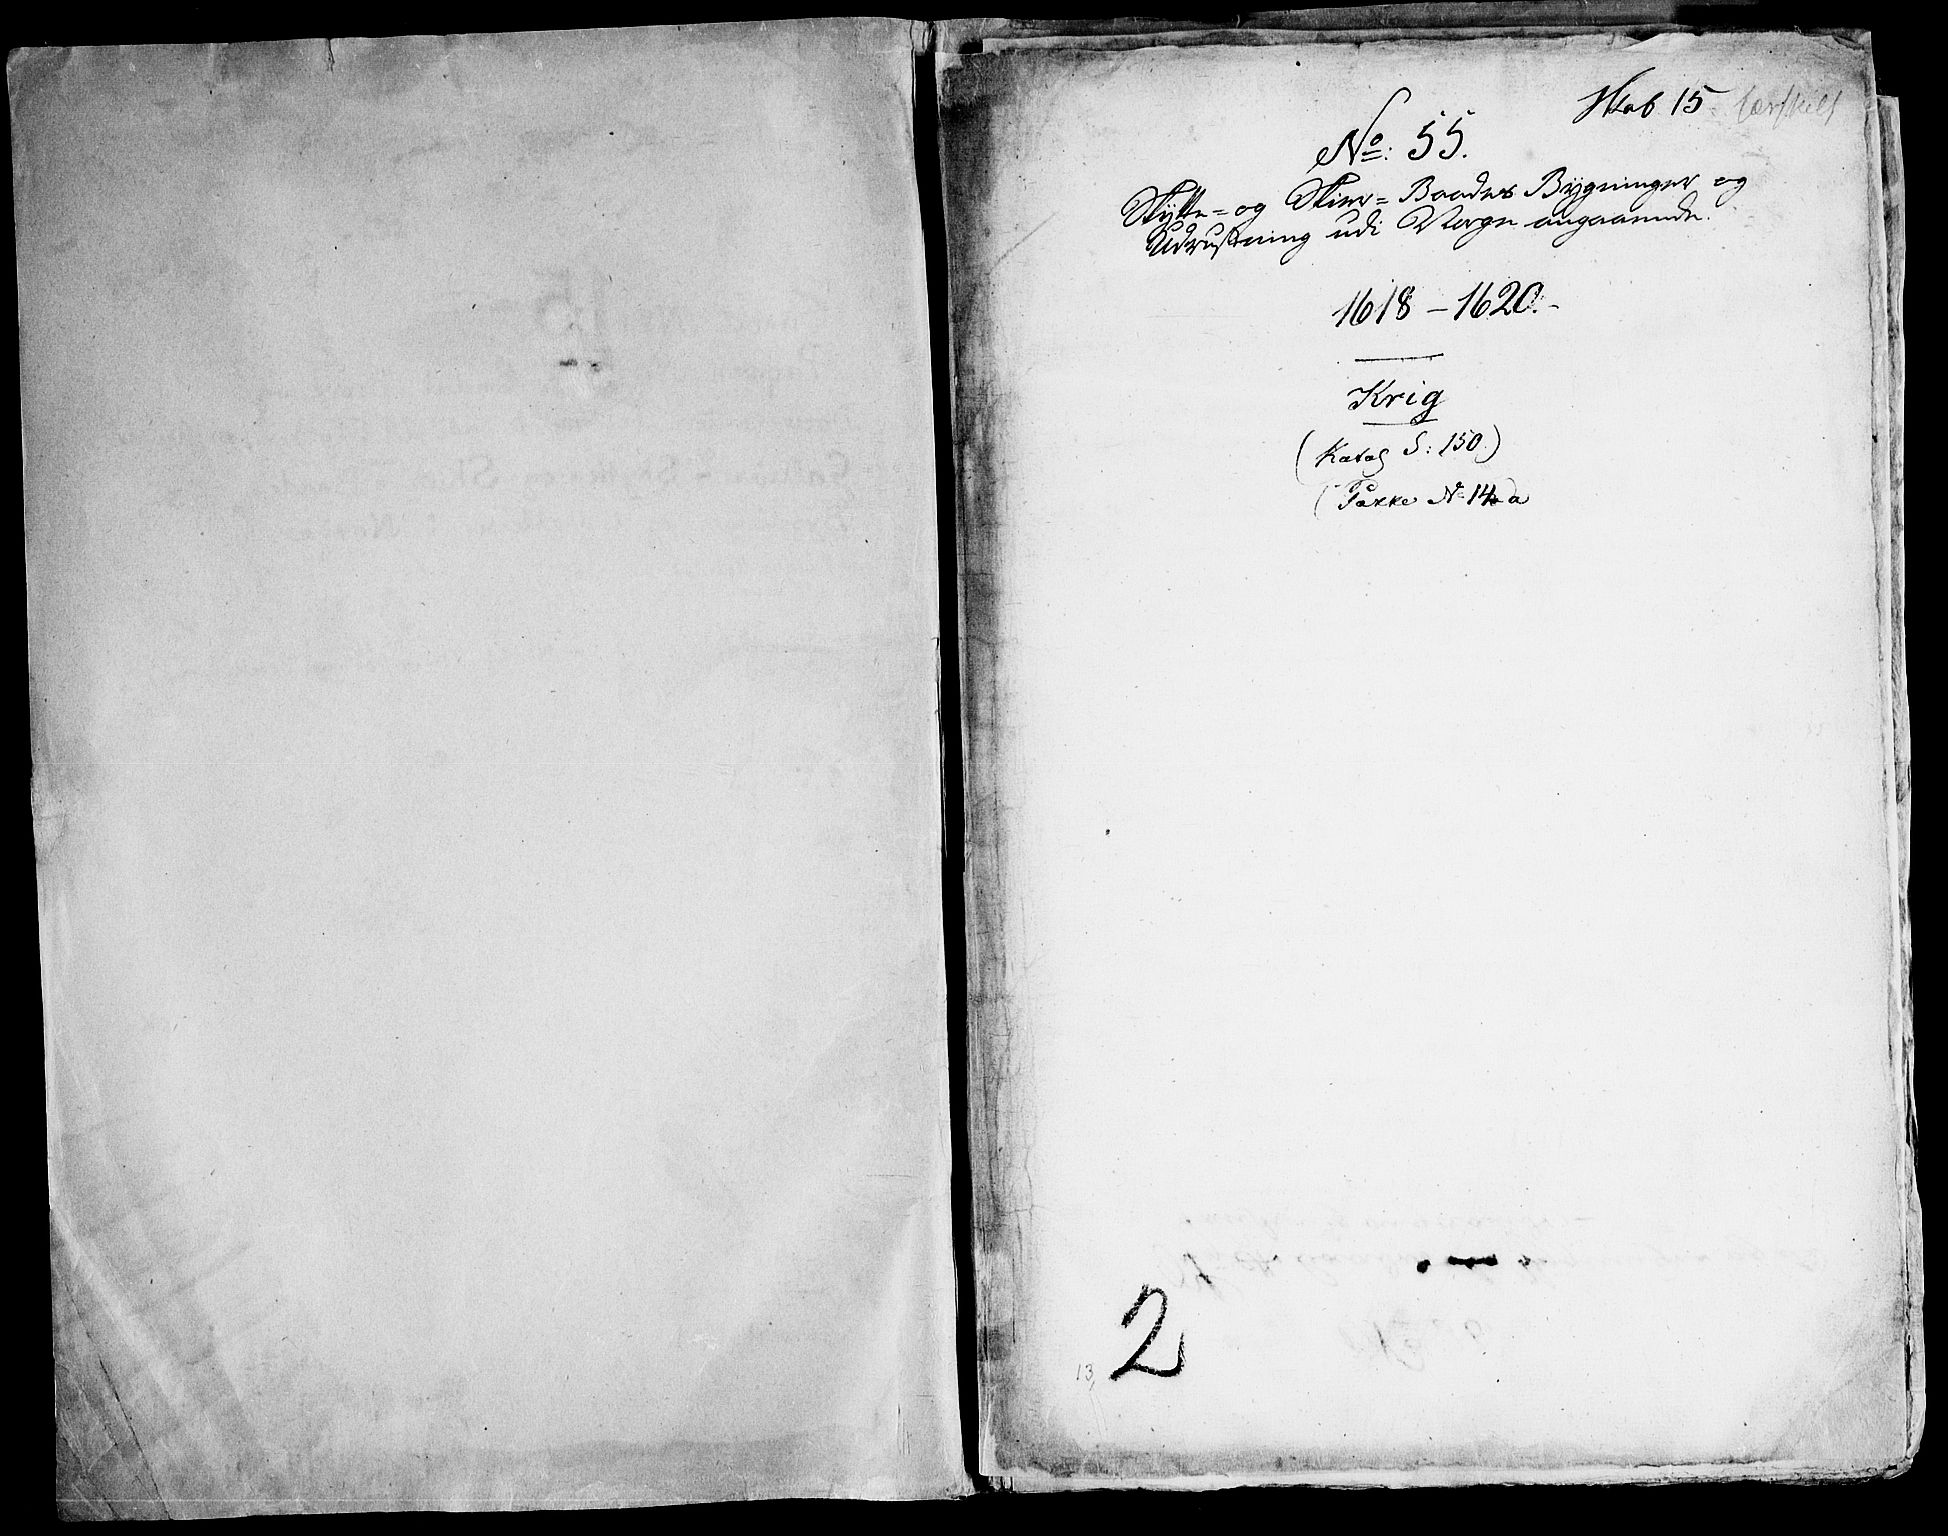 Skab 15 særskilt
No: 55.
Skytte= og Skier= Baades Bygninger og
Udrustning udi Norge angaaende.
1618 - 1620.-
Krig
(Katal S: 150.)
(Pakke No 14 a
2
13,